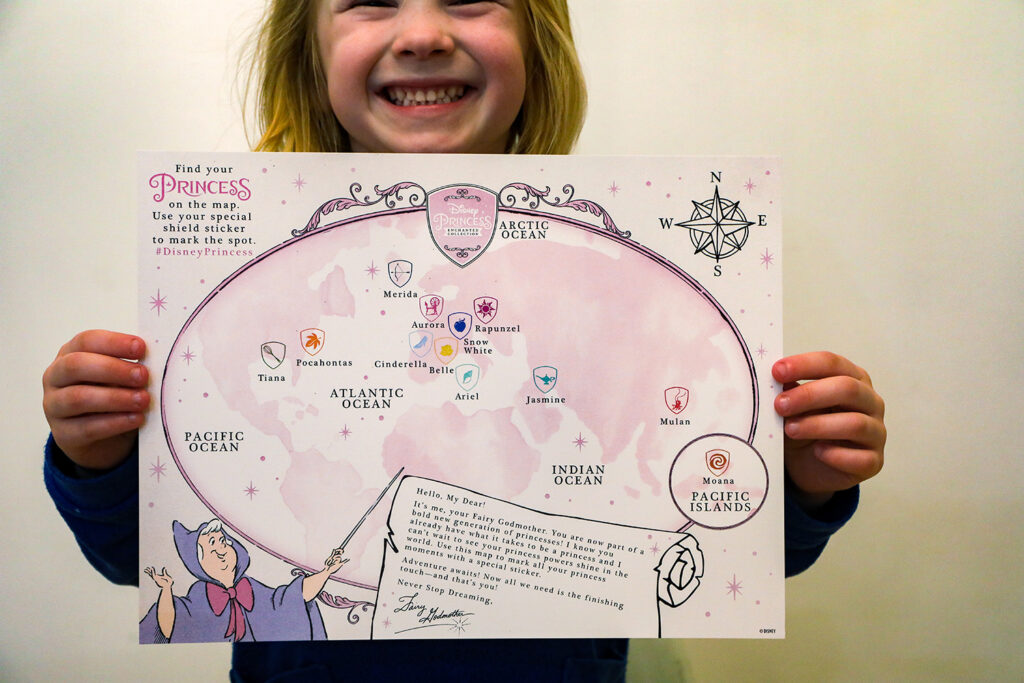 Find your
PRINCESS
on the map.
Use your special
shield sticker
to mark the spot.
#DisneyPrincess
Disney
PRINCESS
ENCHANTED
COLLECTION
ARCTIC
OCEAN
N
W
E
S
Merida
Aurora
Rapunzel
Snow
White
Pocahontas
Cinderella
Belle
Tiana
Ariel
Jasmine
Mulan
ATLANTIC
OCEAN
PACIFIC
OCEAN
INDIAN
OCEAN
Moana
PACIFIC
ISLANDS
Hello, My Dear!
It's me, your Fairy Godmother. You are now part of a
bold new generation of princesses! I know you
already have what it takes to be a princess and I
can't wait to see your princess powers shine in the
world. Use this map to mark all your princess
moments with a special sticker.
Adventure awaits! Now all we need is the finishing
touch—and that's you!
Never Stop Dreaming,
Fairy Godmother
© DISNEY